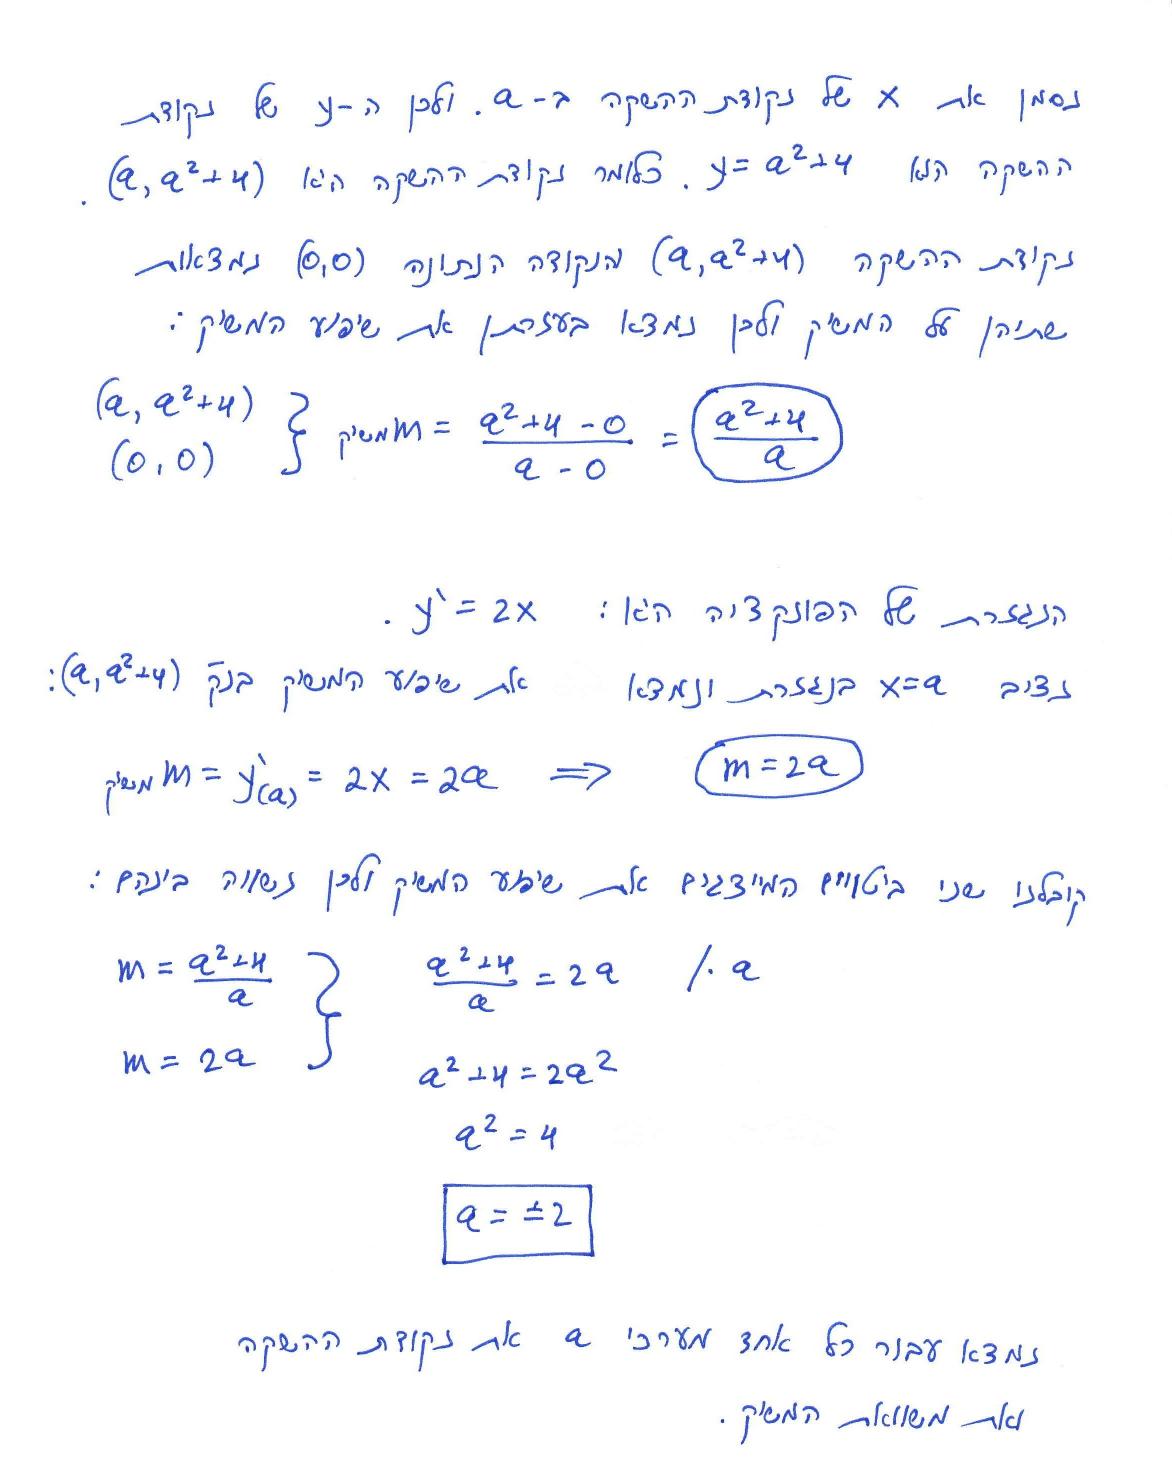 נסמן את x של נקודת ההשקה ב-a. ולכן ה-y של נקודת
ההשקה הוא y = a²+4. כלומר נקודת ההשקה היא (a, a²+4).
נקודת ההשקה (a, a²+4) והנקודה הנתונה (0,0) נמצאות
שתיהן על המשיק ולכן נמצא בעזרתן את שיפוע המשיק:
(a, a²+4)
(0,0) } m משיק = (a²+4-0)/(a-0) = (a²+4)/a
הנגזרת של הפונקציה היא: y` = 2x.
נציב x=a בנגזרת ונמצא את שיפוע המשיק בנק' (a, a²+4):
m משיק = y`(a) = 2x = 2a ⟹ m = 2a
קיבלנו שני ביטויים המייצגים את שיפוע המשיק ולכן נשווה ביניהם:
m = (a²+4)/a
m = 2a }
(a²+4)/a = 2a /·a
a²+4 = 2a²
a² = 4
a = ±2
נמצא עבור כל אחד מערכי a את נקודת ההשקה
ואת משוואת המשיק.